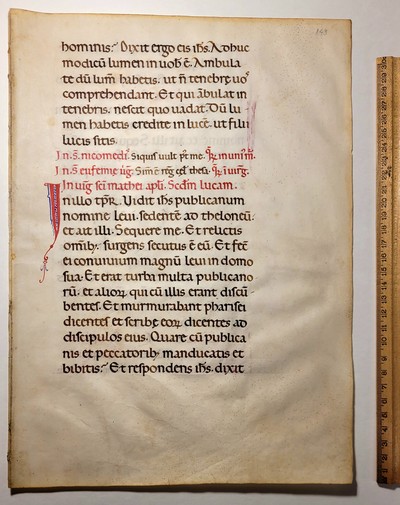 hominis? Dixit ergo eis ihs. Adhuc
modicū lumen in uob̄ ē. Ambula
te dū lum̄ habetis. ut n̄ tenebre uos
comprehendant. Et qui ābulat in
tenebris. nescit quo uadat. Dū lu
men habetis credite in luce. ut filii
lucis sitis.
In s. nicomedi. Siquis uult
In s. eufemie ug.
In uig sc̄i mathei apli. Sedm̄ lucam.
In illo tp̄r. Uidit ihs publicanum
nomine leui. sedentē ad theloneū.
et ait illi. Sequere me. Et relictis
omib; surgens secutus ē eū. Et fec̄
ei conuiuium magnū leui in domo
sua. Et erat turba multa publicano
rū. et alioꝝ qui cū illis erant discū
bentes. Et murmurabant pharisei
dicentes et scribe eoꝝ dicentes ad
discipulos eius. Quare cū publica
nis et peccatorib; manducatis et
bibitis? Et respondens ihs. dixit